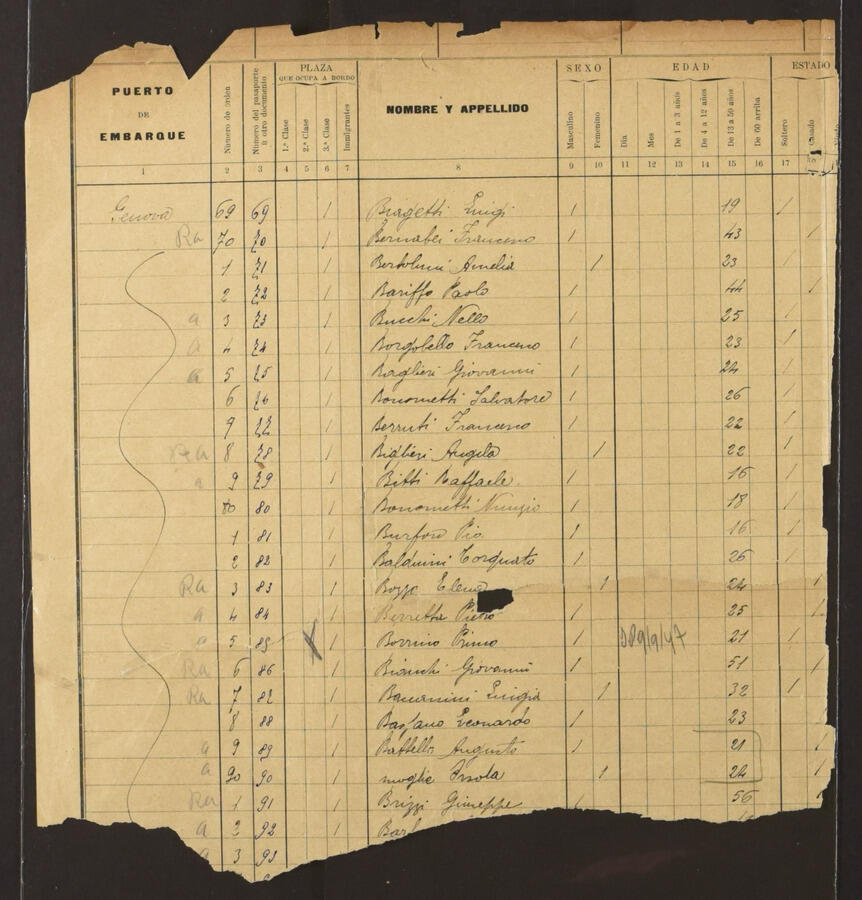 PUERTO DE EMBARQUE
Número de orden
Número del pasaporte ú otro documento
PLAZA QUE OCUPA A BORDO
1.ª Clase
2.ª Clase
3.ª Clase
Inmigrantes
NOMBRE Y APPELLIDO
SEXO
Masculino
Femenino
EDAD
Día
Mes
De 1 a 3 años
De 4 a 12 años
De 13 a 59 años
De 60 arriba
ESTADO
Soltero
Casado
1 2 3 4 5 6 7 8 9 10 11 12 13 14 15 16 17
Genova 69 69 / Biagetti Luigi / 19 /
Ra 70 70 / Bernabei Francesco / 43 /
1 71 / Bertolini Amelia / 23 /
2 72 / Bariffo Paolo / 44 /
a 3 73 / Bucchi Nello / 25 /
a 4 74 / Borgobello Francesco / 23 /
a 5 75 / Baglieri Giovanni / 24 /
6 76 / Bonometti Salvatore / 26 /
77 / Berruti Francesco / 22 /
Ra 8 78 / Biglieri Angela / 22 /
a 9 79 / Bitti Raffaele / 16 /
80 80 / Bonometti Nunzio / 18 /
1 81 / Pio / 16 /
2 82 / Balduini Torquato / 26 /
Ra 3 83 / Bozzo Elena / 24 /
a 4 84 / Berretta Pietro / 25 /
a 5 85 / Borrino Primo / 21 /
Ra 6 86 / Bianchi Giovanni / 51 /
Ra 7 87 / Luigia / 32 /
8 88 / Leonardo / 23
a 9 89 / Battello Augusto / 21 /
a 90 90 / moglie Isola / 24 /
Ra 1 91 / Brizzi Giuseppe / 56 /
a 2 92 /
a 3 93